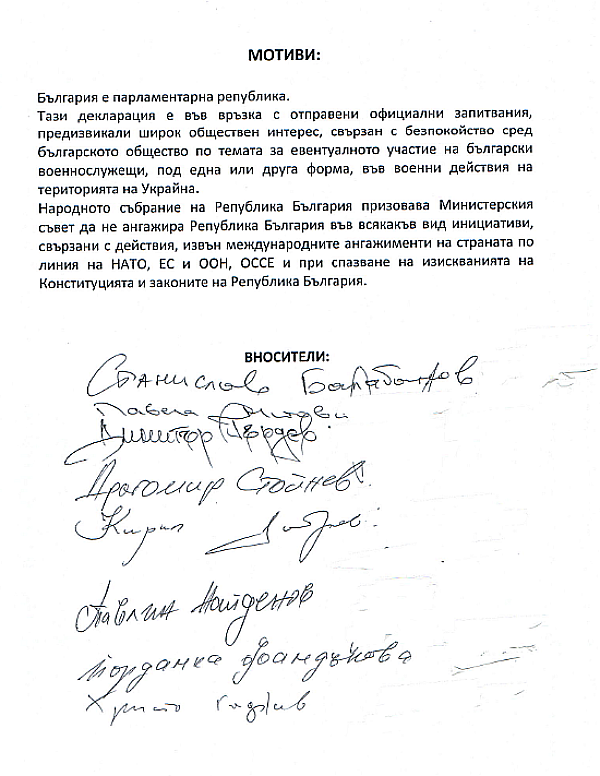 МОТИВИ:
България е парламентарна република.
Тази декларация е във връзка с отправени официални запитвания,
предизвикали широк обществен интерес, свързан с безпокойство сред
българското общество по темата за евентуалното участие на български
военнослужещи, под една или друга форма, във военни действия на
територията на Украйна.
Народното събрание на Република България призовава Министерския
съвет да не ангажира Република България във всякакъв вид инициативи,
свързани с действия, извън международните ангажименти на страната по
линия на НАТО, ЕС и ООН, ОССЕ и при спазване на изискванията на
Конституцията и законите на Република България.
ВНОСИТЕЛИ:
Станислав Балабанов
Павела Митова
Димитър Гърдев
Драгомир Стойнев
Кирил
Павлин Найденов
Йорданка Фандъкова
Христо Гаджев